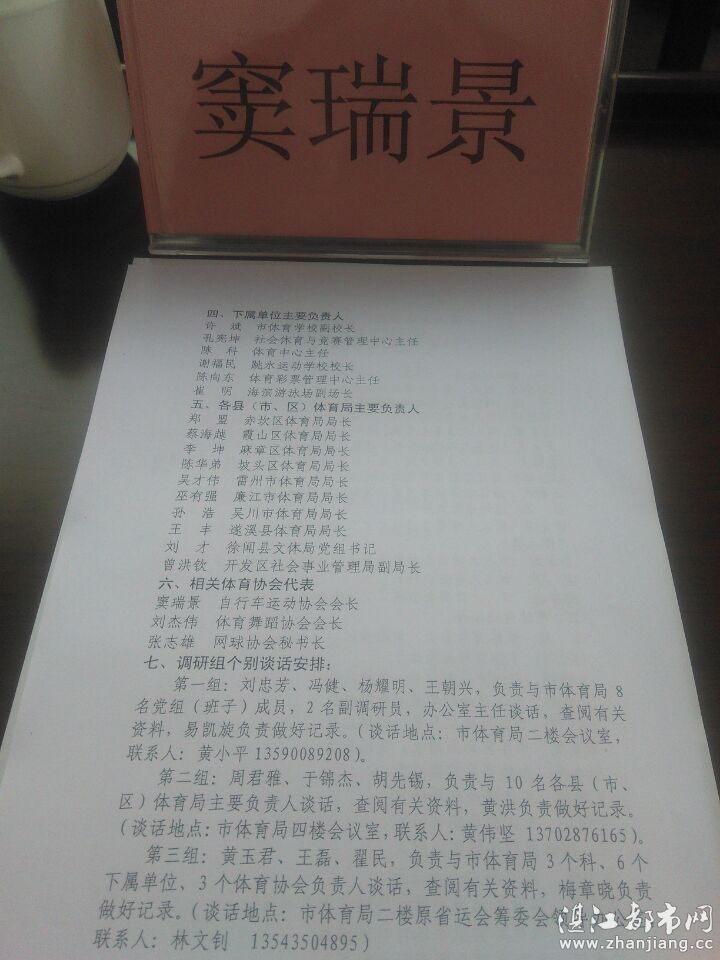 窦瑞景
四、下属单位主要负责人
许 斌 市体育学校副校长
孔宪坤 社会体育与竞赛管理中心主任
陈 科 体育中心主任
谢福民 跳水运动学校校长
陈向东 体育彩票管理中心主任
崔 明 海滨游泳场副场长
五、各县（市、区）体育局主要负责人
郑 盟 赤坎区体育局局长
蔡海越 霞山区体育局局长
李 坤 麻章区体育局局长
陈华弟 坡头区体育局局长
吴才伟 雷州市体育局局长
巫有强 廉江市体育局局长
孙 浩 吴川市体育局局长
王 丰 遂溪县体育局局长
刘 才 徐闻县文体局党组书记
曾洪钦 开发区社会事业管理局副局长
六、相关体育协会代表
窦瑞景 自行车运动协会会长
刘杰伟 体育舞蹈协会会长
张志雄 网球协会秘书长
七、调研组个别谈话安排：
第一组：刘忠芳、冯健、杨耀明、王朝兴，负责与市体育局 8
名党组（班子）成员，2 名副调研员，办公室主任谈话，查阅有关
资料，易凯旋负责做好记录。（谈话地点：市体育局二楼会议室，
联系人：黄小平 13590089208）。
第二组：周君雅、于锦杰、胡先锡，负责与 10 名各县（市、
区）体育局主要负责人谈话，查阅有关资料，黄洪负责做好记录。
（谈话地点：市体育局四楼会议室，联系人：黄伟坚 13702876165）。
第三组：黄玉君、王磊、翟民，负责与市体育局 3 个科、6 个
下属单位、3 个体育协会负责人谈话，查阅有关资料，梅章晓负责
做好记录。（谈话地点：市体育局二楼原省运会筹委会
联系人：林文钊 13543504895）
湛江都市网
www.zhanjiang.cc